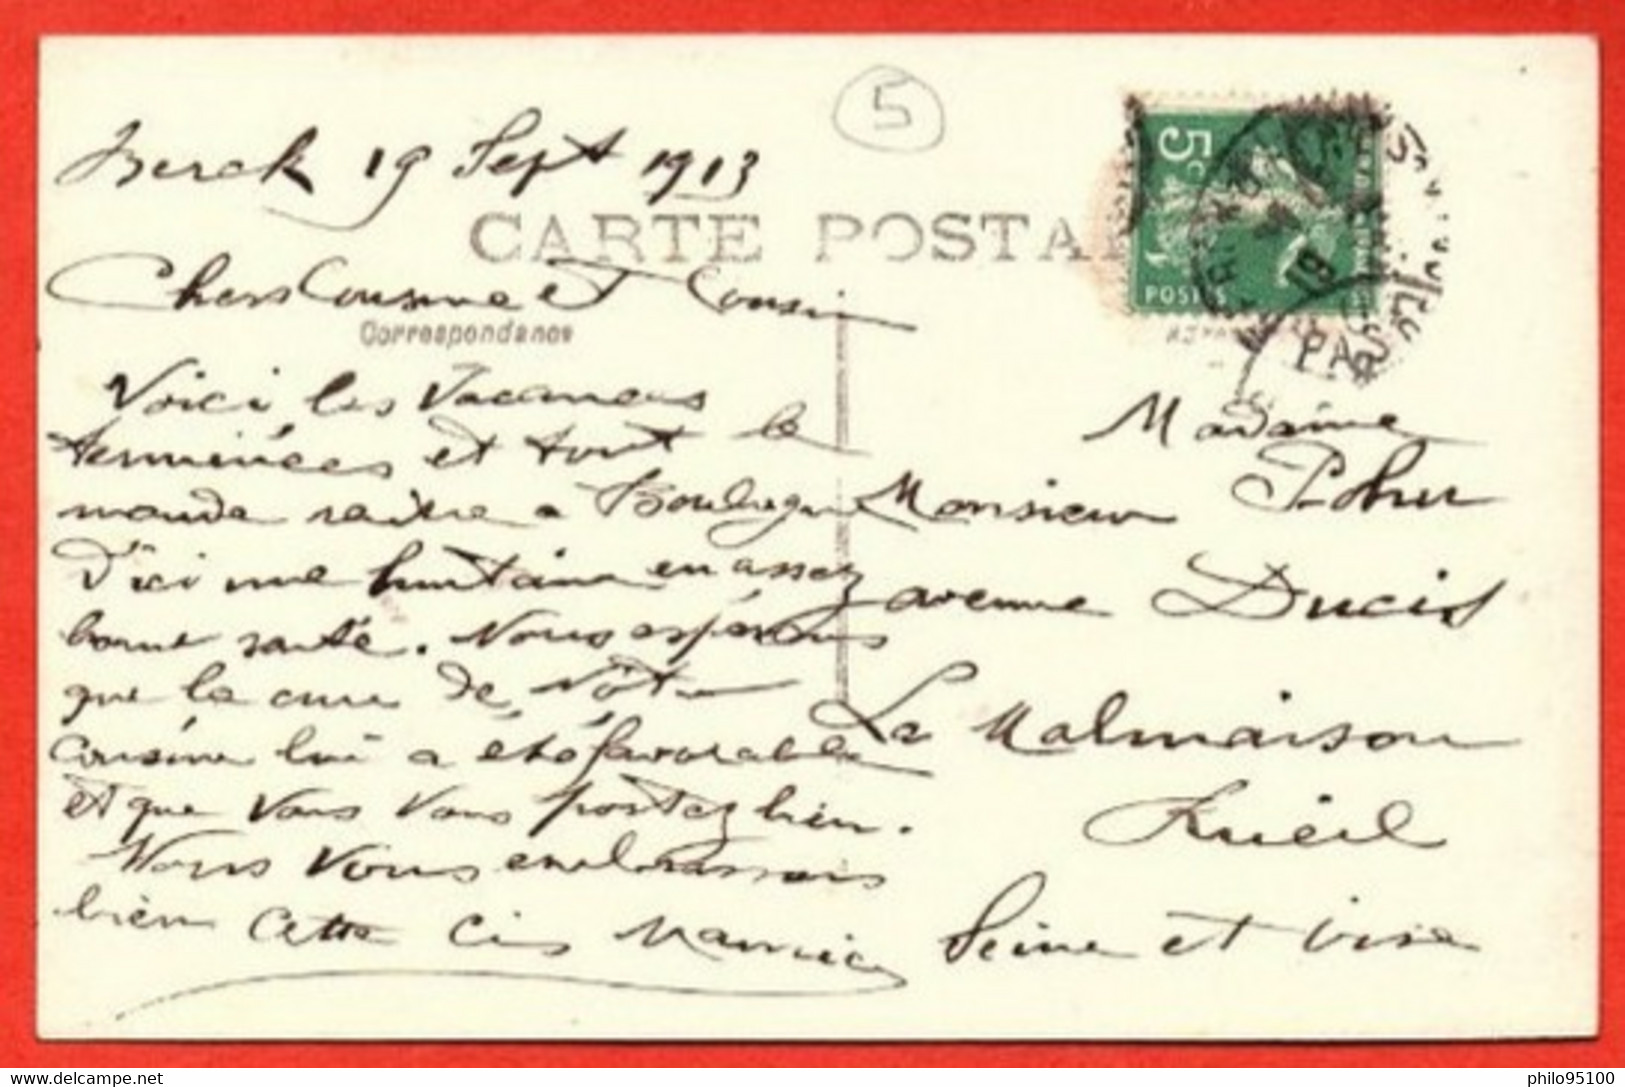 5
Berck 19 Sept 1913
CARTE POSTA
5c
POSTES
PA
19
Chers Cousine et Cousin
Correspondance
Voici les Vacances
terminées et tout le
monde rentre a Boulogne
d'ici une huitaine en assez
bonne santé. Nous espérons
que la cure de Nôtre
cousine lui a été favorable
et que Vous Vous portez bien.
Nous Vous embrassons
bien Cette
Madame
Monsieur
avenue Ducis
La Malmaison
Rueil
Seine et Oise
philo95100